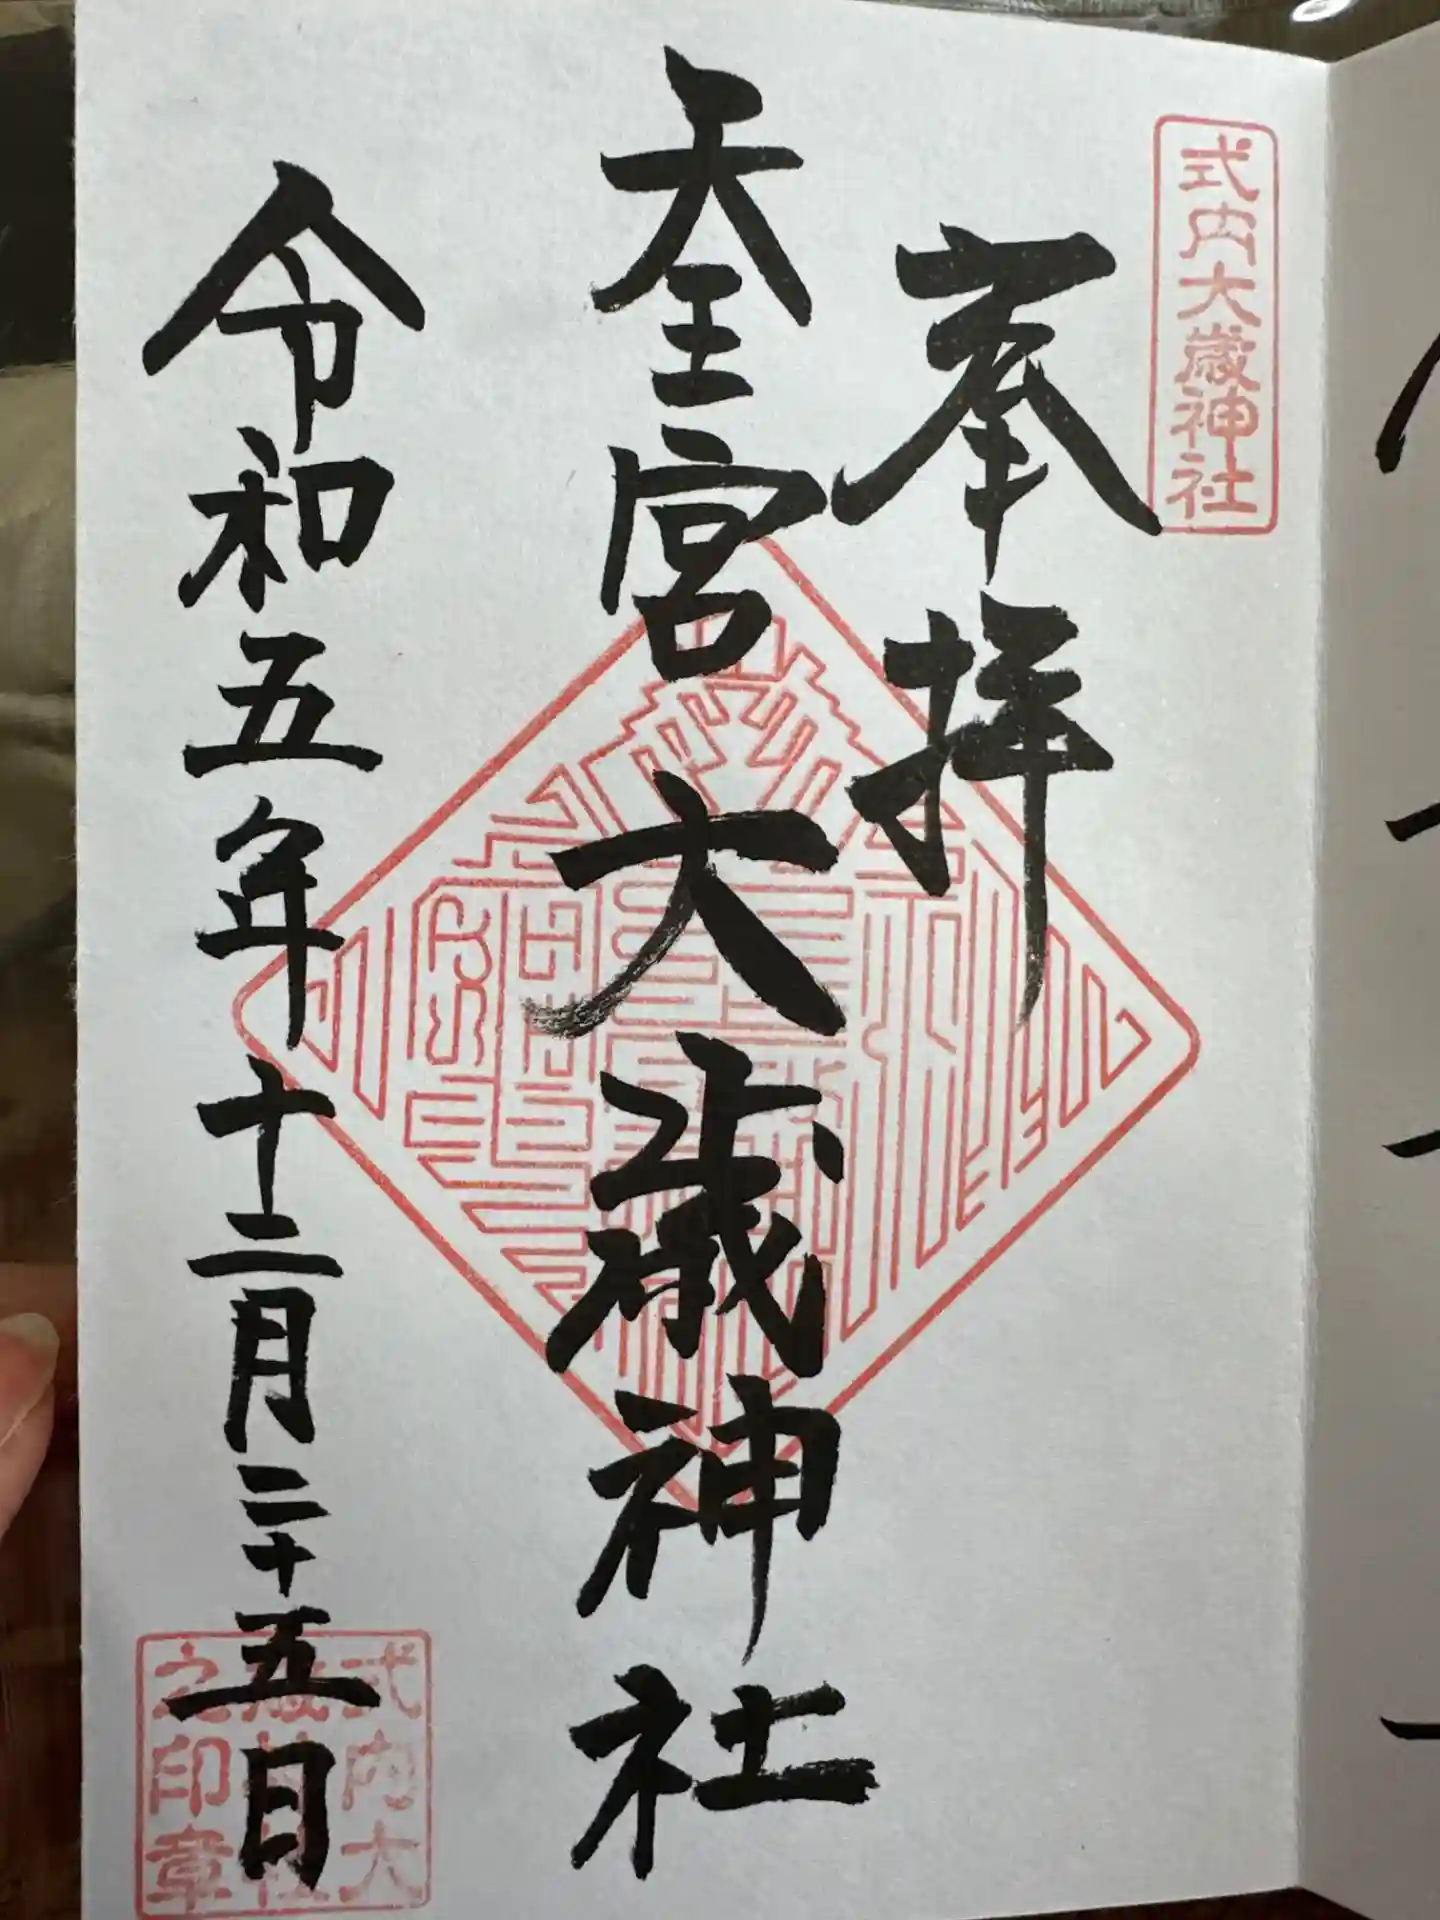 式内大歳神社
奉拝
天王宮大歳神社
令和五年十二月二十五日
式内大
歳神社
之印章